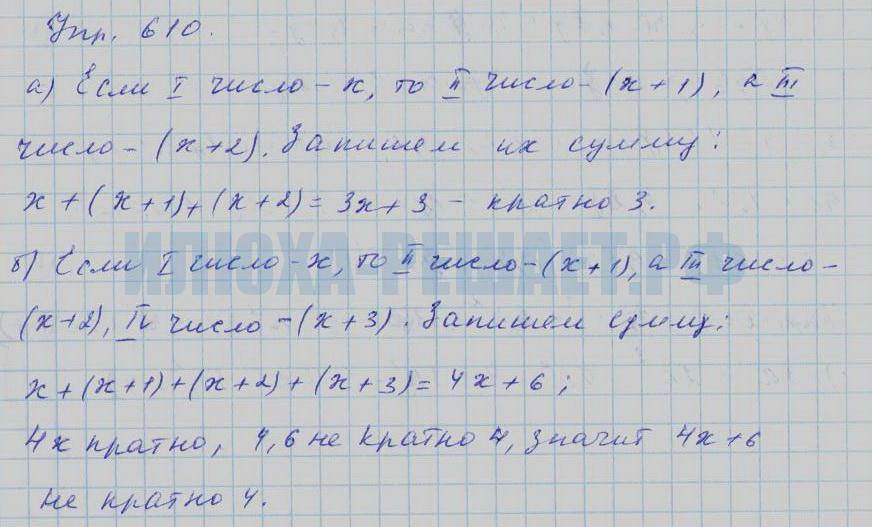 Упр. 610.
а) Если I число - x, то II число - (x+1), а III
число - (x+2). Запишем их сумму:
x+(x+1)+(x+2)=3x+3 - кратно 3.
ИЛЮХА-РЕШАЕТ.РФ
б) Если I число - x, то II число - (x+1), а III число -
(x+2), IV число - (x+3). Запишем сумму:
x+(x+1)+(x+2)+(x+3)=4x+6;
4x кратно, 4, 6 не кратно 4, значит 4x+6
не кратно 4.